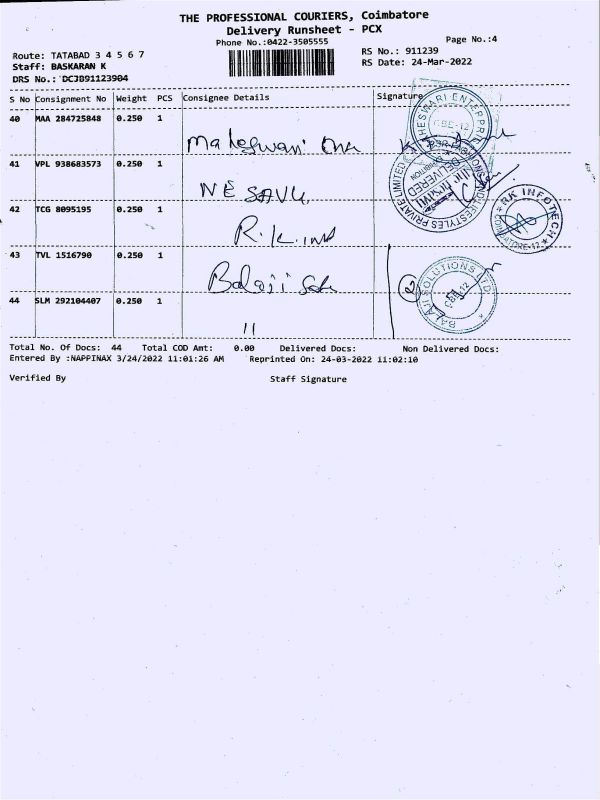 THE PROFESSIONAL COURIERS, Coimbatore
Delivery Runsheet - PCX
Phone No.:0422-3505555
Page No.:4
Route: TATABAD 3 4 5 6 7
RS No.: 911239
Staff: BASKARAN K
RS Date: 24-Mar-2022
DRS No.: DCJB91123904
S No Consignment No Weight PCS Consignee Details Signature
40 MAA 284725848 0.250 1
41 VPL 938683573 0.250 1
NESAVU
42 TCG 8095195 0.250 1
R.K.
RK INFOTECH
43 TVL 1516790 0.250 1
Balaji
BALAJI SOLUTIONS LTD
44 SLM 292104407 0.250 1
11
Total No. Of Docs: 44 Total COD Amt: 0.00 Delivered Docs: Non Delivered Docs:
Entered By :NAPPINAX 3/24/2022 11:01:26 AM Reprinted On: 24-03-2022 11:02:10
Verified By Staff Signature